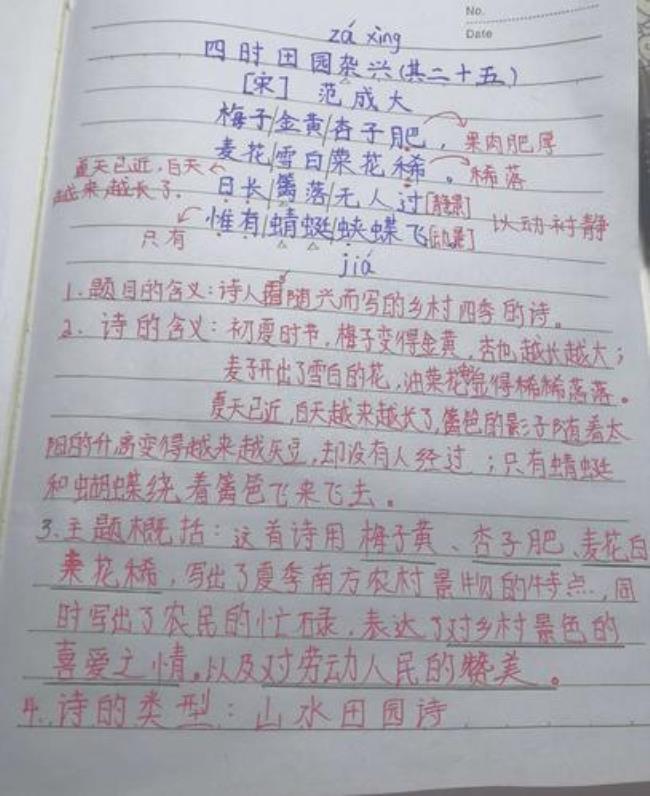 No.
Date
zá xìng
四时田园杂兴(其二十五)
[宋] 范成大
梅子/金黄/杏子肥, 果肉肥厚
麦花/雪白/菜花稀。 稀落
夏天已近,白天
越来越长了.
日长/篱落/无人过[静景]
以动衬静
惟有/蜻蜓/蛱蝶飞[动景]
只有
jiá
1.题目的含义:诗人随兴而写的乡村四季的诗。
2. 诗的含义:初夏时节,梅子变得金黄,杏也越长越大;
麦子开出了雪白的花,油菜花显得稀稀落落。
夏天已近,白天越来越长了,篱笆的影子随着太
阳的升高变得越来越短,却没有人经过;只有蜻蜓
和蝴蝶绕着篱笆飞来飞去。
3.主题概括:这首诗用梅子黄、杏子肥、麦花白
菜花稀,写出了夏季南方农村景物的特点,同
时写出了农民的忙碌,表达了对乡村景色的
喜爱之情。以及对劳动人民的赞美。
4.诗的类型:山水田园诗